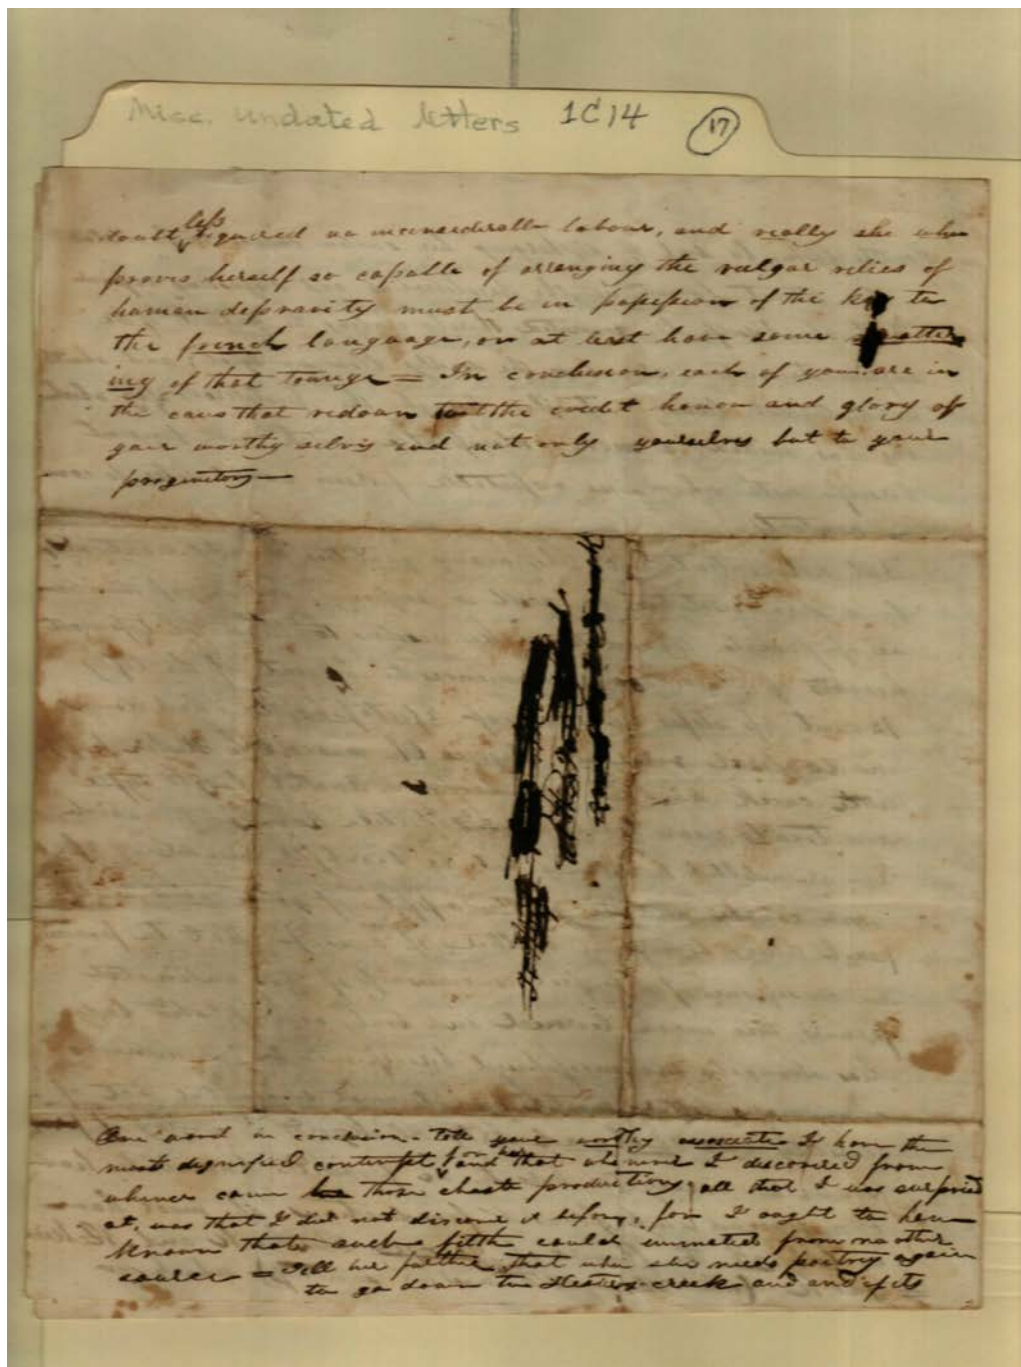 Misc. undated letters 1C14 17
less
doubt required no inconsiderable labour, and really she who
proves herself so capable of arranging the vulgar relics of
human depravity must be in possession of the key to
the french language, or at lest have some smatter
ing of that tounge = In conclusion, each of you are in
the caus that redoun the credit honor and glory of
your worthy selves and not only yourselves but to your
progenitors —
One word in conclusion - tell your worthy associate I have the
most dignified contempt for her and that when I discovered from
whence came those chaste productions all that I was surprised
at, was that I did not discover it before, for I ought to have
known that such filth could from no other
source = Tell her further that when she needs poetry again
to go down to creek and